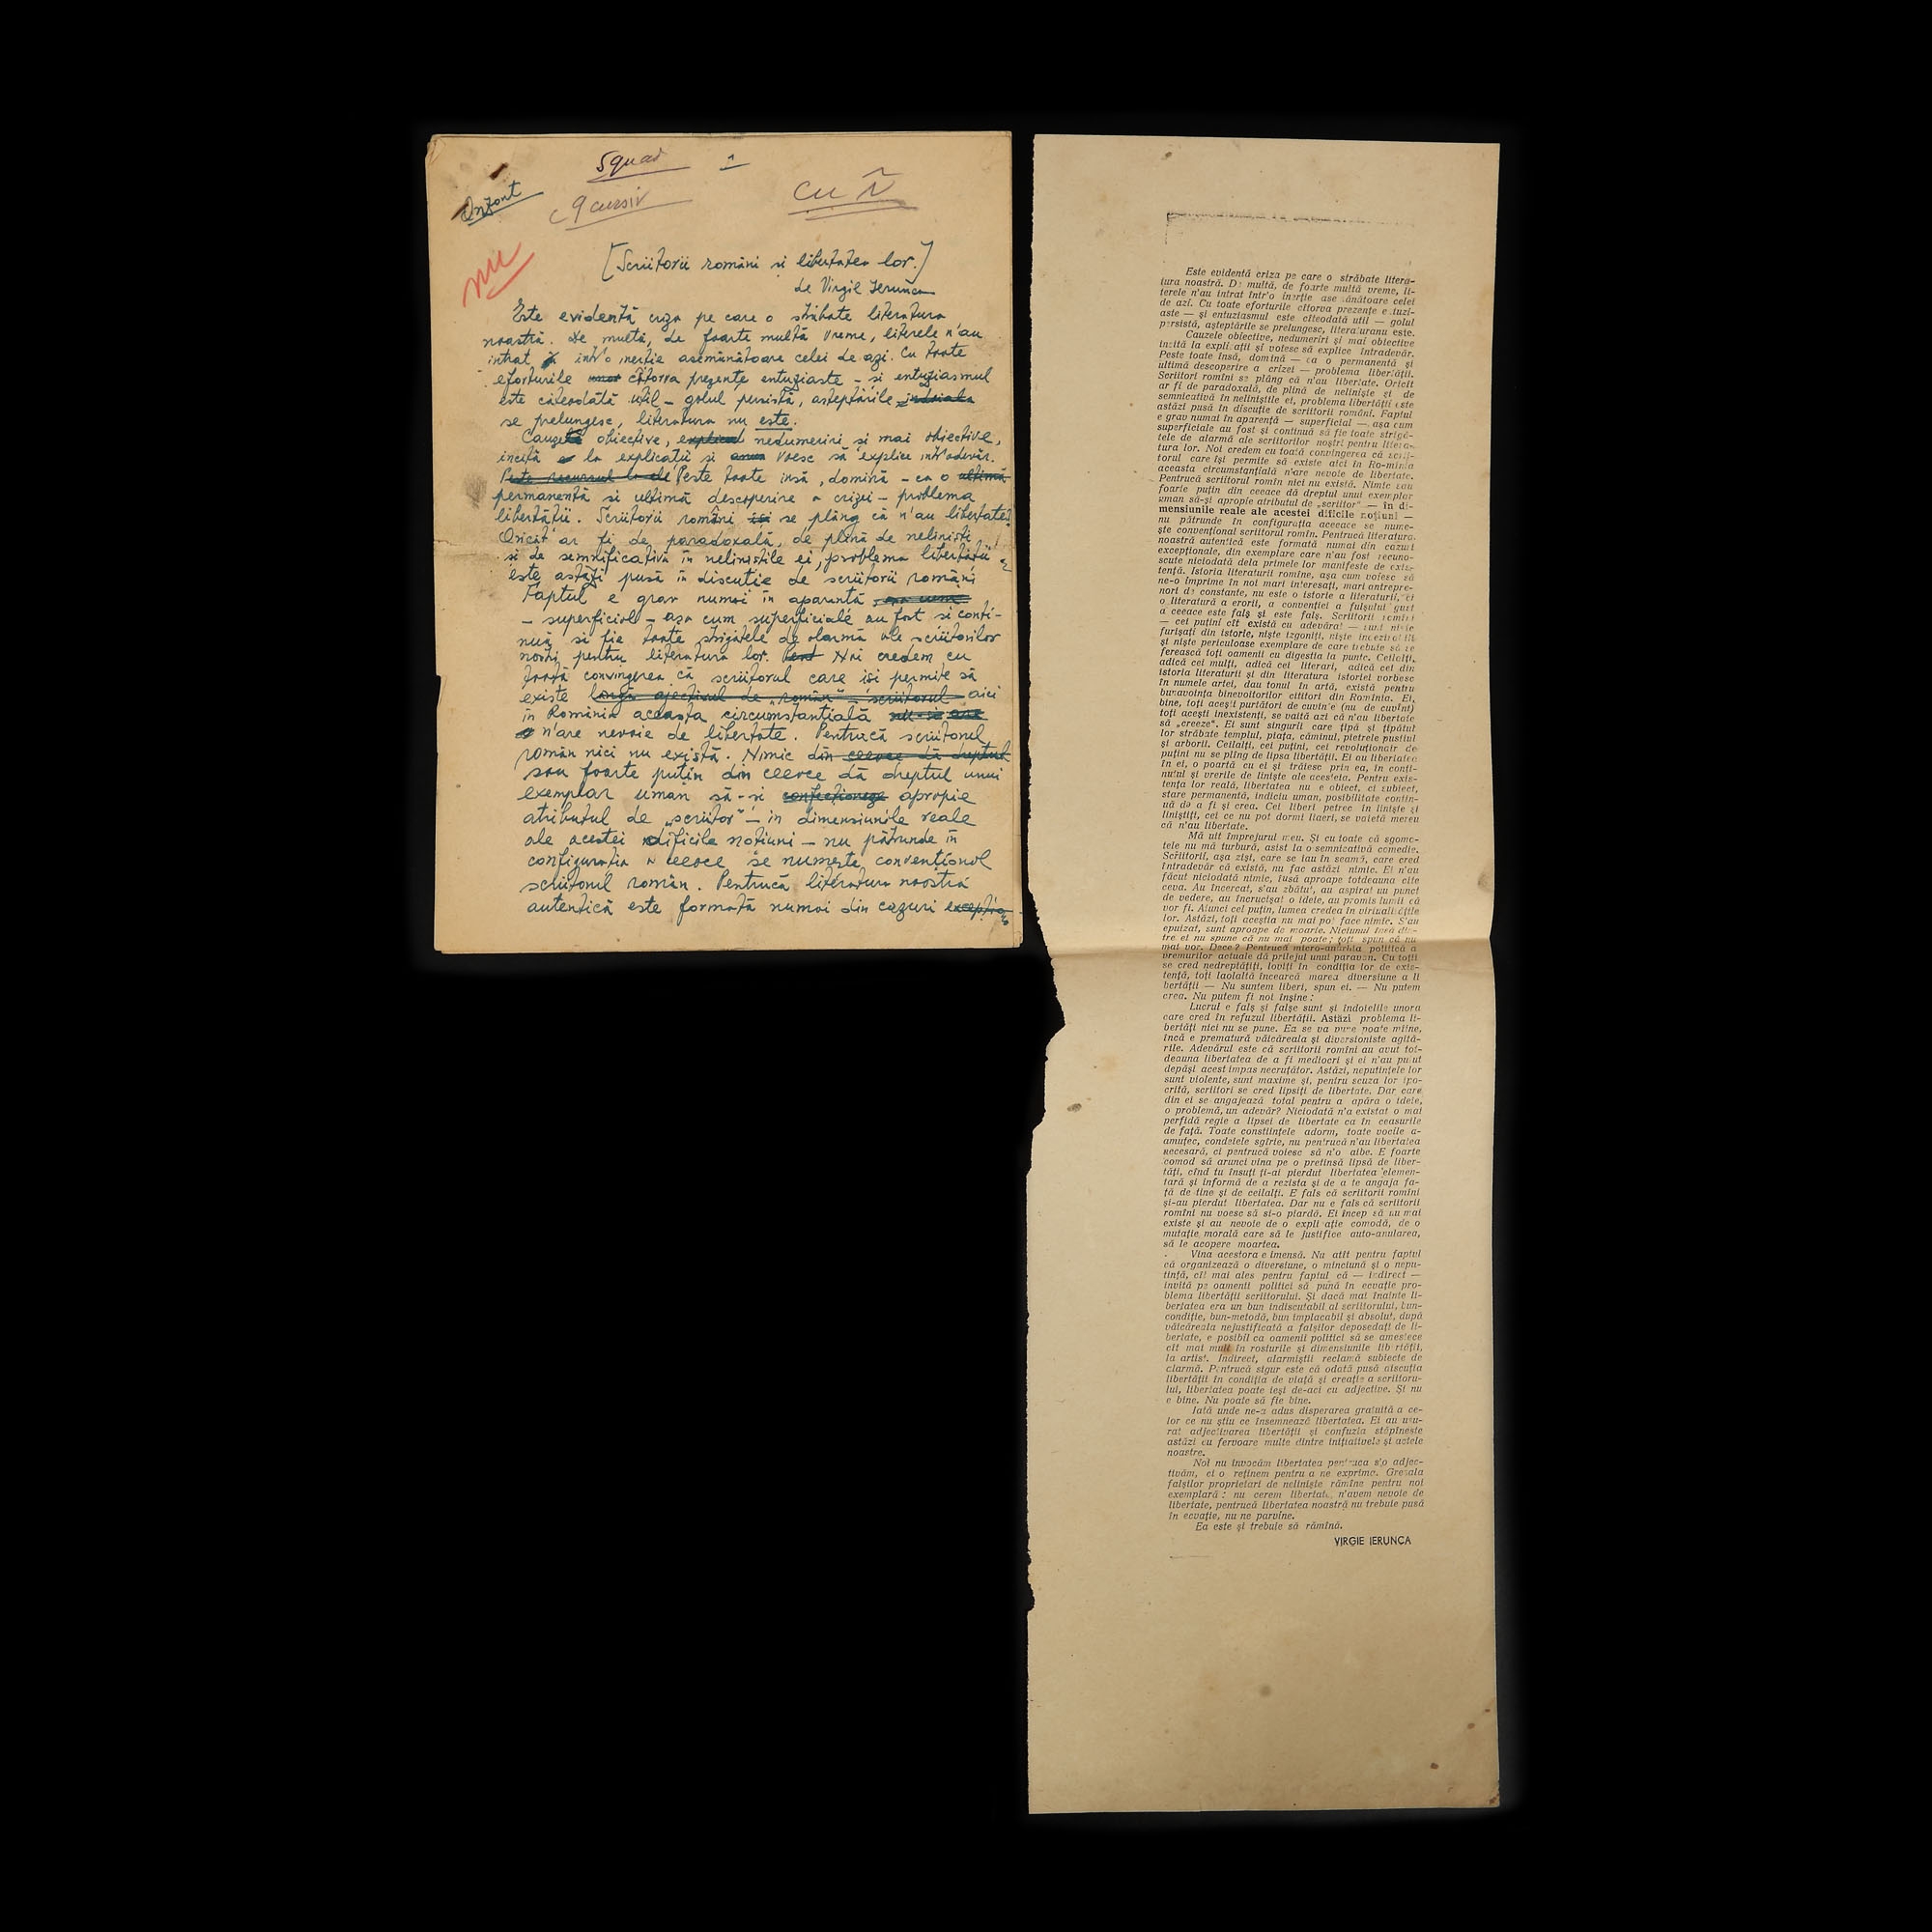 Squar
1
c 9 cursiv
cu Ñ
nu
[Scriitorii români și libertatea lor.]
de Virgil Ierunca
Este evidentă criza pe care o străbate literatura
noastră. De multă, de foarte multă vreme, literele n'au
intrat într'o inerție asemănătoare celei de azi. Cu toate
eforturile câtorva prezențe entuziaste – și entuziasmul
este câteodată util – golul persistă, așteptările
se prelungesc, literatura nu este.
Cauzele obiective, nedumeriri și mai obiective,
incită la explicații și voesc să explice întradevăr.
Peste toate însă, domină – ca o
permanentă și ultimă descoperire a crizei – problema
libertății. Scriitorii români se plâng că n'au libertate.
Oricât ar fi de paradoxală, de plină de neliniști
și de semnificativă în neliniștile ei, problema libertății
este astăzi pusă în discuție de scriitorii români
Faptul e grav numai în aparență
– superficial – așa cum superficiale au fost și conti-
nuă să fie toate strigătele de alarmă ale scriitorilor
noștri pentru literatura lor. Noi credem cu
toată convingerea că scriitorul care își permite să
existe aici
în România aceasta circumstanțială
n'are nevoie de libertate. Pentrucă scriitorul
român nici nu există. Nimic
sau foarte puțin din ceeace dă dreptul unui
exemplar uman să-și apropie
atributul de „scriitor" – în dimensiunile reale
ale acestei dificile noțiuni – nu pătrunde în
configurația a ceeace se numește convențional
scriitorul român. Pentrucă literatura noastră
autentică este formată numai din cazuri
Este evidentă criza pe care o străbate litera-
tura noastră. De multă, de foarte multă vreme, li-
terele n'au intrat într'o inerție asemănătoare celei
de azi. Cu toate eforturile cîtorva prezențe entuzi-
aste — și entuziasmul este cîteodată util — golul
persistă, așteptările se prelungesc, literatura nu este.
Cauzele obiective, nedumeriri și mai obiective
incită la explicații și votesc să explice întradevăr.
Peste toate însă, domină — ca o permanentă și
ultimă descoperire a crizei — problema libertății.
Scriitorii romîni se plâng că n'au libertate. Oricît
ar fi de paradoxală, de plină de neliniște și de
semnicativă în neliniștile ei, problema libertății este
astăzi pusă în discuție de scriitorii români. Faptul
e grav numai în aparență — superficial — așa cum
superficiale au fost și continuă să fie toate strigă-
tele de alarmă ale scriitorilor noștri pentru litera-
tura lor. Noi credem cu toată convingerea că scrii-
torul care își permite să existe aici în Ro-mînia
aceasta circumstanțială n'are nevoie de libertate.
Pentrucă scriitorul romîn nici nu există. Nimic sau
foarte puțin din ceeace dă dreptul unui exemplar
uman să-și apropie atributul de „scriitor" — în di-
mensiunile reale ale acestei dificile noțiuni —
nu pătrunde în configurația aceeace se nume-
ște convențional scriitorul romîn. Pentrucă literatura
noastră autentică este formată numai din cazuri
excepționale, din exemplare care n'au fost recuno-
scute niciodată dela primele lor manifeste de exis-
tență. Istoria literaturii romîne, așa cum voiesc să
ne-o imprime în noi mari interesați, mari antrepre-
nori de constante, nu este o istorie a literaturii, ci
o literatură a erorii, a convenției a fulșului gust
a ceeace este fals și este fals. Scriitorii romîni
— cei puțini cît există cu adevărat — sunt niște
furișați din istorie, niște izgoniți, niște incezitabili
și niște periculoase exemplare de care trebuie să se
ferească toți oamenii cu digestia la punct. Ceilalți,
adică cei mulți, adică cei literari, adică cei din
istoria literaturii și din literatura istoriei vorbesc
în numele artei, dau tonul în artă, există pentru
bunavoința binevoitorilor cititori din Romînia. Ei,
bine, toți acești purtători de cuvin'e (nu de cuvînt)
toți acești inexistenți, se vaită azi că n'au libertate
să „creeze". Ei sunt singurii care țipă și țipătul
lor străbate templul, piața, căminul, pietrele pustiul
și arborii. Ceilalți, cei puțini, cei revoluționair de
puțini nu se plîng de lipsa libertății. Ei au libertatea
în ei, o poartă cu ei și trăiesc prin ea, în conți-
nutul și vrerile de liniște ale acesteia. Pentru exis-
tența lor reală, libertatea nu e obiect, ci subiect,
stare permanentă, indiciu uman, posibilitate contin-
uă de a fi și crea. Cei liberi petrec în liniște și
liniștiți, cei ce nu pot dormi liberi, se vaietă mereu
că n'au libertate.
Mă uit împrejurul meu. Și cu toate că sgomo-
tele nu mă turbură, asist la o semnicativă comedie.
Scriitorii, așa ziși, care se iau în seamă, care cred
întradevăr că există, nu fac astăzi nimic. Ei n'au
făcut niciodată nimic, însă aproape totdeauna cite
ceva. Au încercat, s'au zbătut, au aspirat un punct
de vedere, au încrucișat o idee, au promis lumii că
vor fi. Atunci cel puțin, lumea credea în virtualitățile
lor. Astăzi, toți aceștia nu mai pot face nimic. S'au
epuizat, sunt aproape de moarte. Niciunul însă din-
tre ei nu spune că nu mai poate; toți spun că nu
mai vor. Dece? Pentrucă micro-anarhia politică a
vremurilor actuale dă prilejul unui paravan. Cu toții
se cred nedreptățiți, loviți în condiția lor de exis-
tență, toți laolaltă încearcă marea diversiune a li
bertății — Nu suntem liberi, spun ei. — Nu putem
crea. Nu putem fi noi înșine:
Lucrul e fals și false sunt și îndoielile unora
care cred în refuzul libertății. Astăzi problema li-
bertăți nici nu se pune. Ea se va pune poate mîine,
încă e prematură văicăreala și diversioniste agită-
rile. Adevărul este că scriitorii romîni au avut tot-
deauna libertatea de a fi mediocri și ei n'au putut
depăși acest impas necruțător. Astăzi, neputințele lor
sunt violente, sunt maxime și, pentru scuza lor ipo-
crită, scriitori se cred lipsiți de libertate. Dar care
din ei se angajează total pentru a apăra o ideie,
o problemă, un adevăr? Niciodată n'a existat o mai
perfidă regie a lipsei de libertate ca în ceasurile
de față. Toate constiințele adorm, toate vocile a-
amuțec, condeiele sgîrie, nu pentrucă n'au libertatea
necesară, ci pentrucă voiesc să n'o aibe. E foarte
comod să arunci vina pe o pretinsă lipsă de liber-
tăți, cînd tu însuți ți-ai pierdut libertatea elemen-
tară și informă de a rezista și de a te angaja fa-
ță de tine și de ceilalți. E fals că scriitorii romîni
și-au pierdut libertatea. Dar nu e fals că scriitorii
romîni nu voesc să și-o piardă. Ei încep să nu mai
existe și au nevoie de o expli ație comodă, de o
mutație morală care să le justifice auto-anularea,
să le acopere moartea.
Vina acestora e imensă. Nu atît pentru faptul
că organizează o diversiune, o minciună și o nepu-
tință, cît mai ales pentru faptul că — indirect —
invită pe oamenii politici să pună în ecuație pro-
blema libertății scriitorului. Și dacă mai înainte li-
bertatea era un bun indiscutabil al scriitorului, bun-
condiție, bun-metodă, bun implacabil și absolut, după
văicăreala nejustificată a falșilor deposedați de li-
bertate, e posibil ca oamenii politici să se amestece
cît mai mult în rosturile și dimensiunile lib rtății,
la artist. Indirect, alarmiștii reclamă subiecte de
alarmă. Pentrucă sigur este că odată pusă discuția
libertății în condiția de viață și creație a scriitoru-
lui, libertatea poate ieși de-aci cu adjective. Și nu
e bine. Nu poate să fie bine.
Iată unde ne-a adus disperarea gratuită a ce-
lor ce nu știu ce însemnează libertatea. Ei au usu-
rat adjectivarea libertății și confuzia stăpînește
astăzi cu fervoare multe dintre inițiativele și actele
noastre.
Noi nu invocăm libertatea pentruca s'o adjec-
tivăm, ci o reținem pentru a ne exprima. Greșala
falșilor proprietari de neliniște rămîne pentru noi
exemplară: nu cerem libertate, n'avem nevoie de
libertate, pentrucă libertatea noastră nu trebuie pusă
în ecuație, nu ne parvine.
Ea este și trebuie să rămînă.
VIRGIE IERUNCA